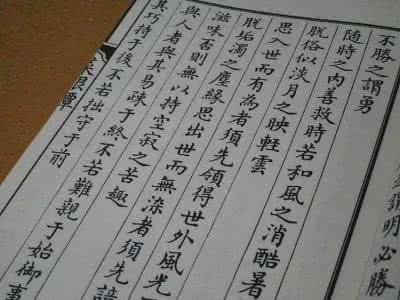 明必勝
不勝之謂勇
随時之內善救時若和風之消酷暑
脫俗似淡月之映輕雲
思入世而有為者須先領得世外風光
脫垢濁之塵緣思出世而無染者須先諳
滋味否則無以持空寂之苦趣
與人者與其易疎于終不若難親于始御事
其巧持于後不若拙守于前
菜根譚